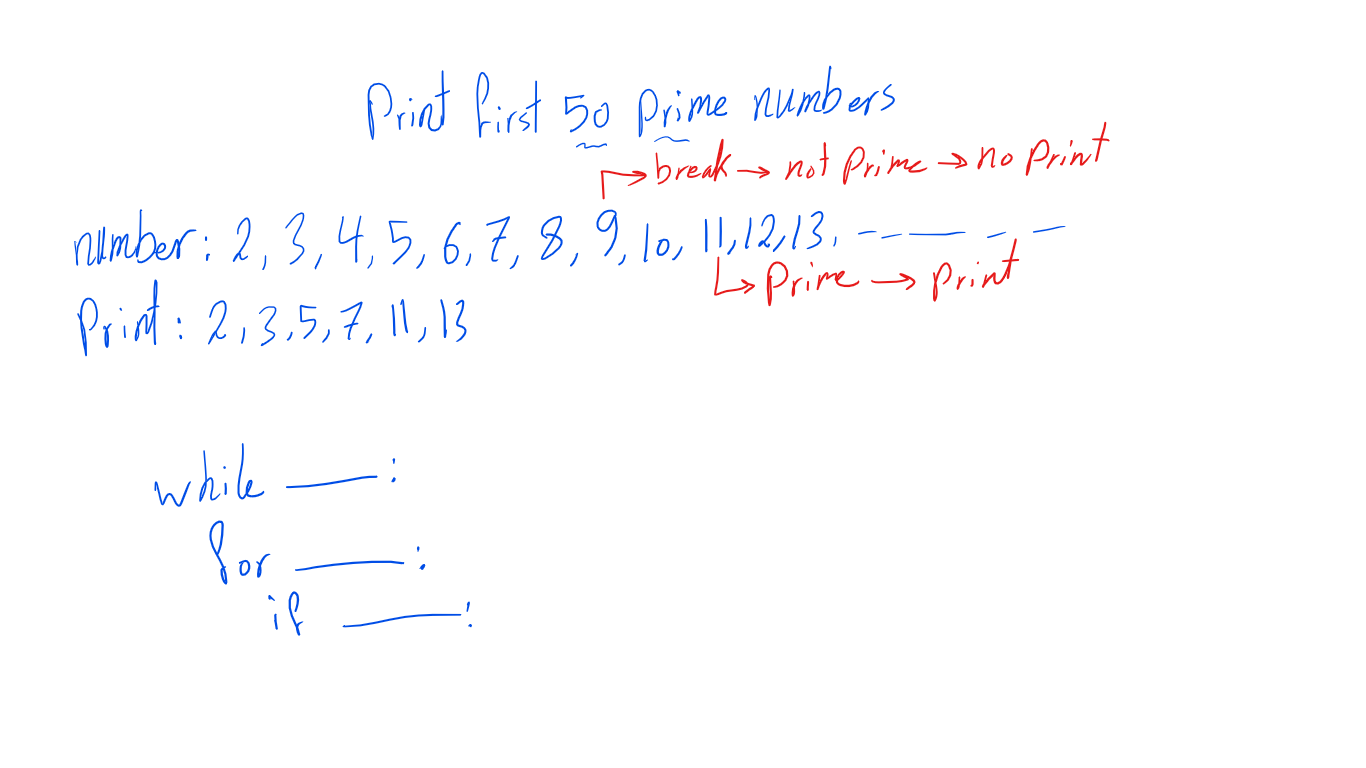 Print first 50 Prime numbers
break → not Prime → no Print
number: 2, 3, 4, 5, 6, 7, 8, 9, 10, 11, 12, 13, - - — - , -
Prime → print
Print: 2, 3, 5, 7, 11, 13
while ____ :
for ____ :
if ____ :